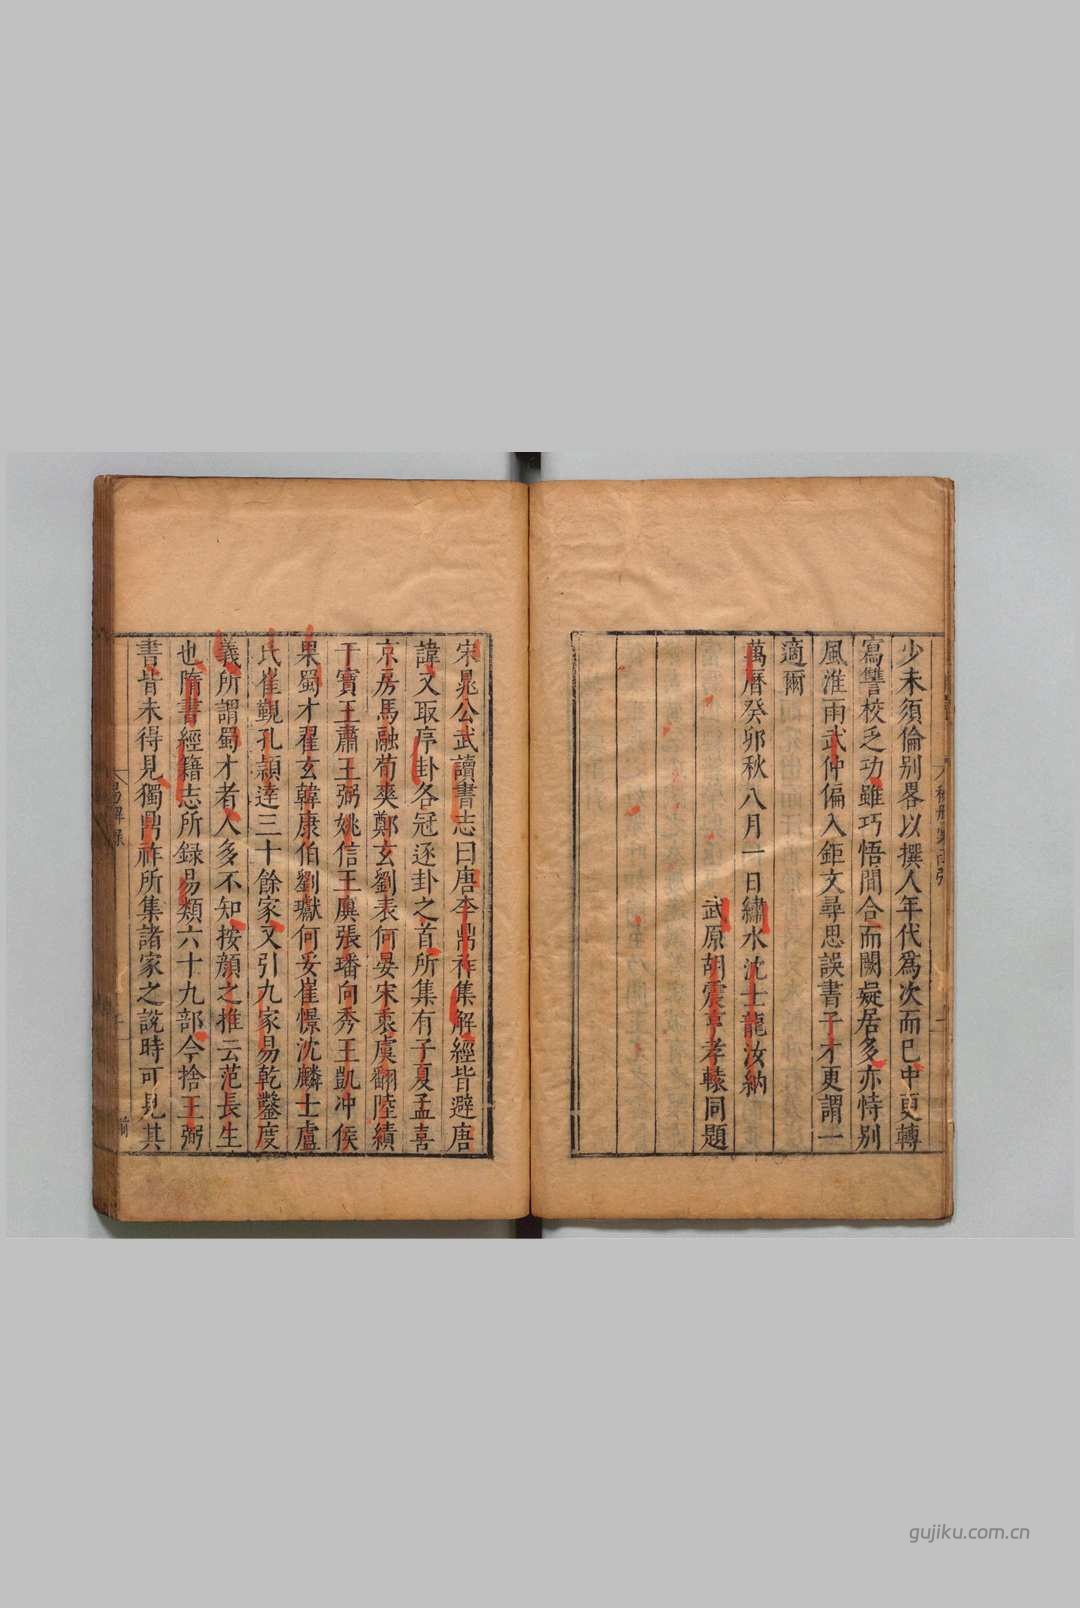 少未須倫别畧以撰人年代爲次而巳中更轉
寫讐校乏功雖巧悟間合而闕疑居多亦恃别
風淮雨武仲偏入鉅文尋思誤書子才更謂一
適爾
萬曆癸卯秋八月十日繡水沈士龍汝納
武原胡震亨孝轅同題
宋晁公武讀書志曰唐李鼎祚集解經皆避唐
諱又取序卦各冠逐卦之首所集有子夏孟喜
京房馬融荀爽鄭玄劉表何晏宋衷虞翻陸績
干寶王肅王弼姚信王廙張璠向秀王凱冲侯
果蜀才翟玄韓康伯劉瓛何妥崔憬沈麟士盧
氏崔覲孔穎達三十餘家又引九家易乾鑿度
義所謂蜀才者人多不知按顔之推云范長生
也隋書經籍志所録易類六十九部今捨王弼
書皆未得見獨鼎祚所集諸家之説時可見其
易解
gujiku.com.cn